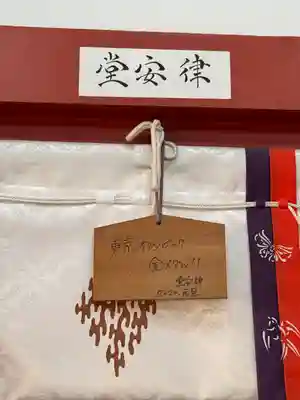 堂安律
東京オリンピック
金メダル!!
堂安律
2020. 元旦